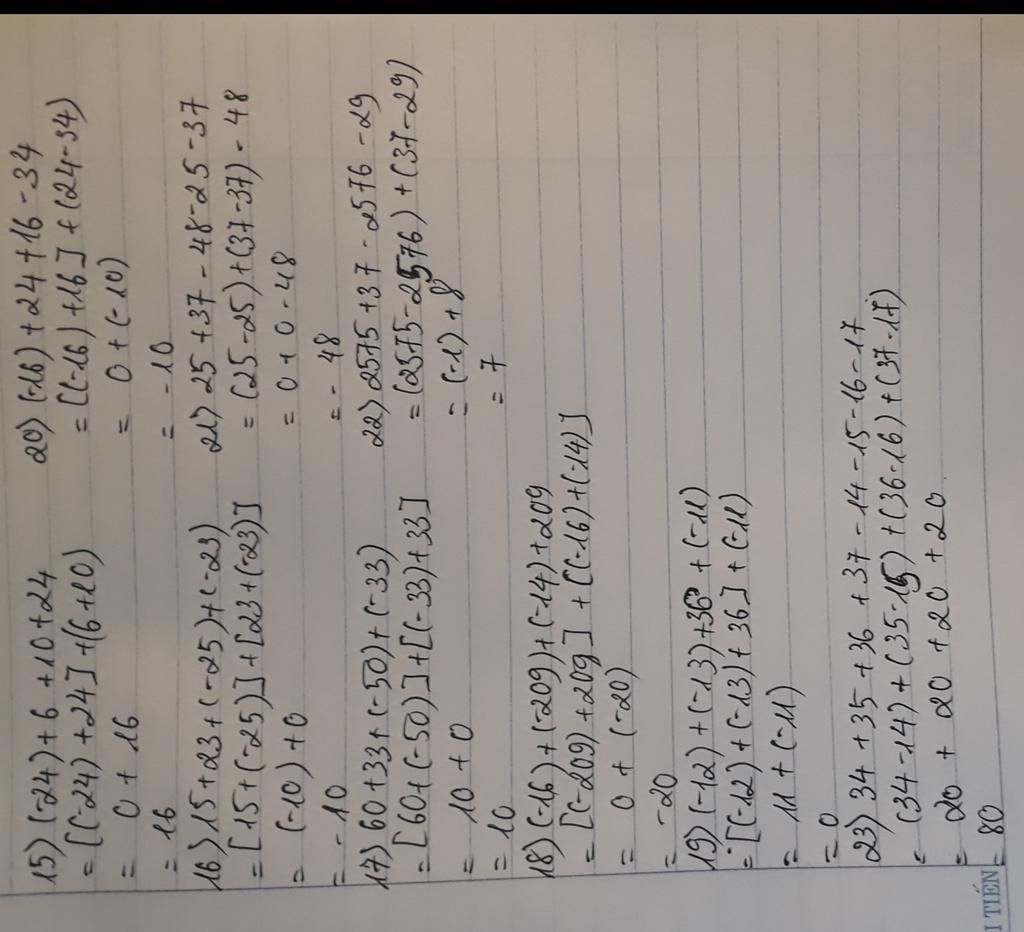 15) (-24) + 6 + 10 + 24
= [(-24) + 24] + (6 + 10)
= 0 + 16
= 16
16) 15 + 23 + (-25) + (-23)
= [15 + (-25)] + [23 + (-23)]
= (-10) + 0
= - 10
17) 60 + 33 + (-50) + (-33)
= [60 + (-50)] + [(-33) + 33]
= 10 + 0
= 10
18) (-16) + (-209) + (-14) + 209
= [(-209) + 209] + [(-16) + (-14)]
= 0 + (-20)
= -20
19) (-12) + (-13) + 36 + (-11)
= [(-12) + (-13) + 36] + (-11)
= 11 + (-11)
= 0
23) 34 + 35 + 36 + 37 - 14 - 15 - 16 - 17
= (34 - 14) + (35 - 15) + (36 - 16) + (37 - 17)
= 20 + 20 + 20 + 20
= 80
20) (-16) + 24 + 16 - 34
= [(-16) + 16] + (24 - 34)
= 0 + (-10)
= - 10
21) 25 + 37 - 48 - 25 - 37
= (25 - 25) + (37 - 37) - 48
= 0 + 0 - 48
= - 48
22) 2575 + 37 - 2576 - 29
= (2575 - 2576) + (37 - 29)
= (-1) + 8
= 7
I TIẾN